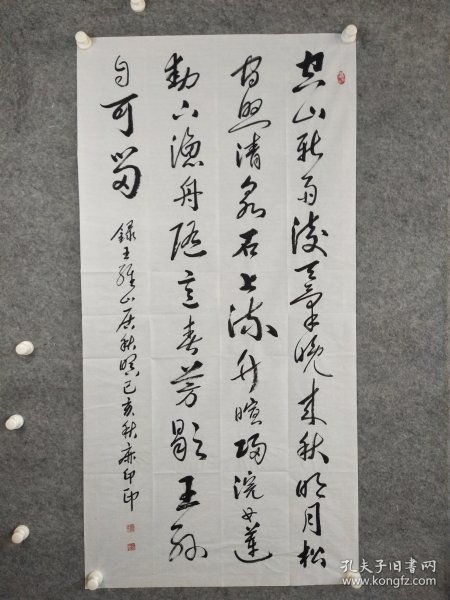 空山新雨後天氣晚来秋明月松
間照清泉石上流竹喧歸浣女蓮
動下漁舟随意春芳歇王孫
自可留
錄王維山居秋暝己亥秋
孔夫子旧书网
www.kongfz.com